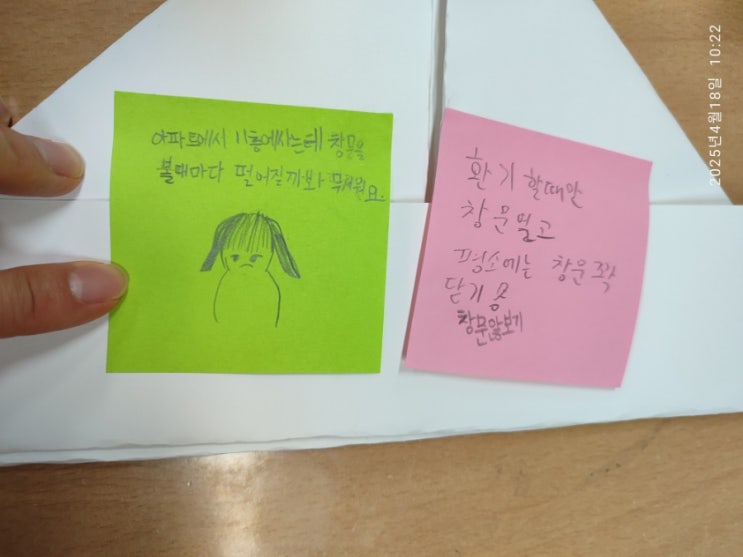 아파트에서 11층에사는데 창문을
볼때마다 떨어질까봐 무서워요.
환기할때만
창문열고
평소에는 창문꽉
닫기
창문않보기
2025년4월18일 10:22